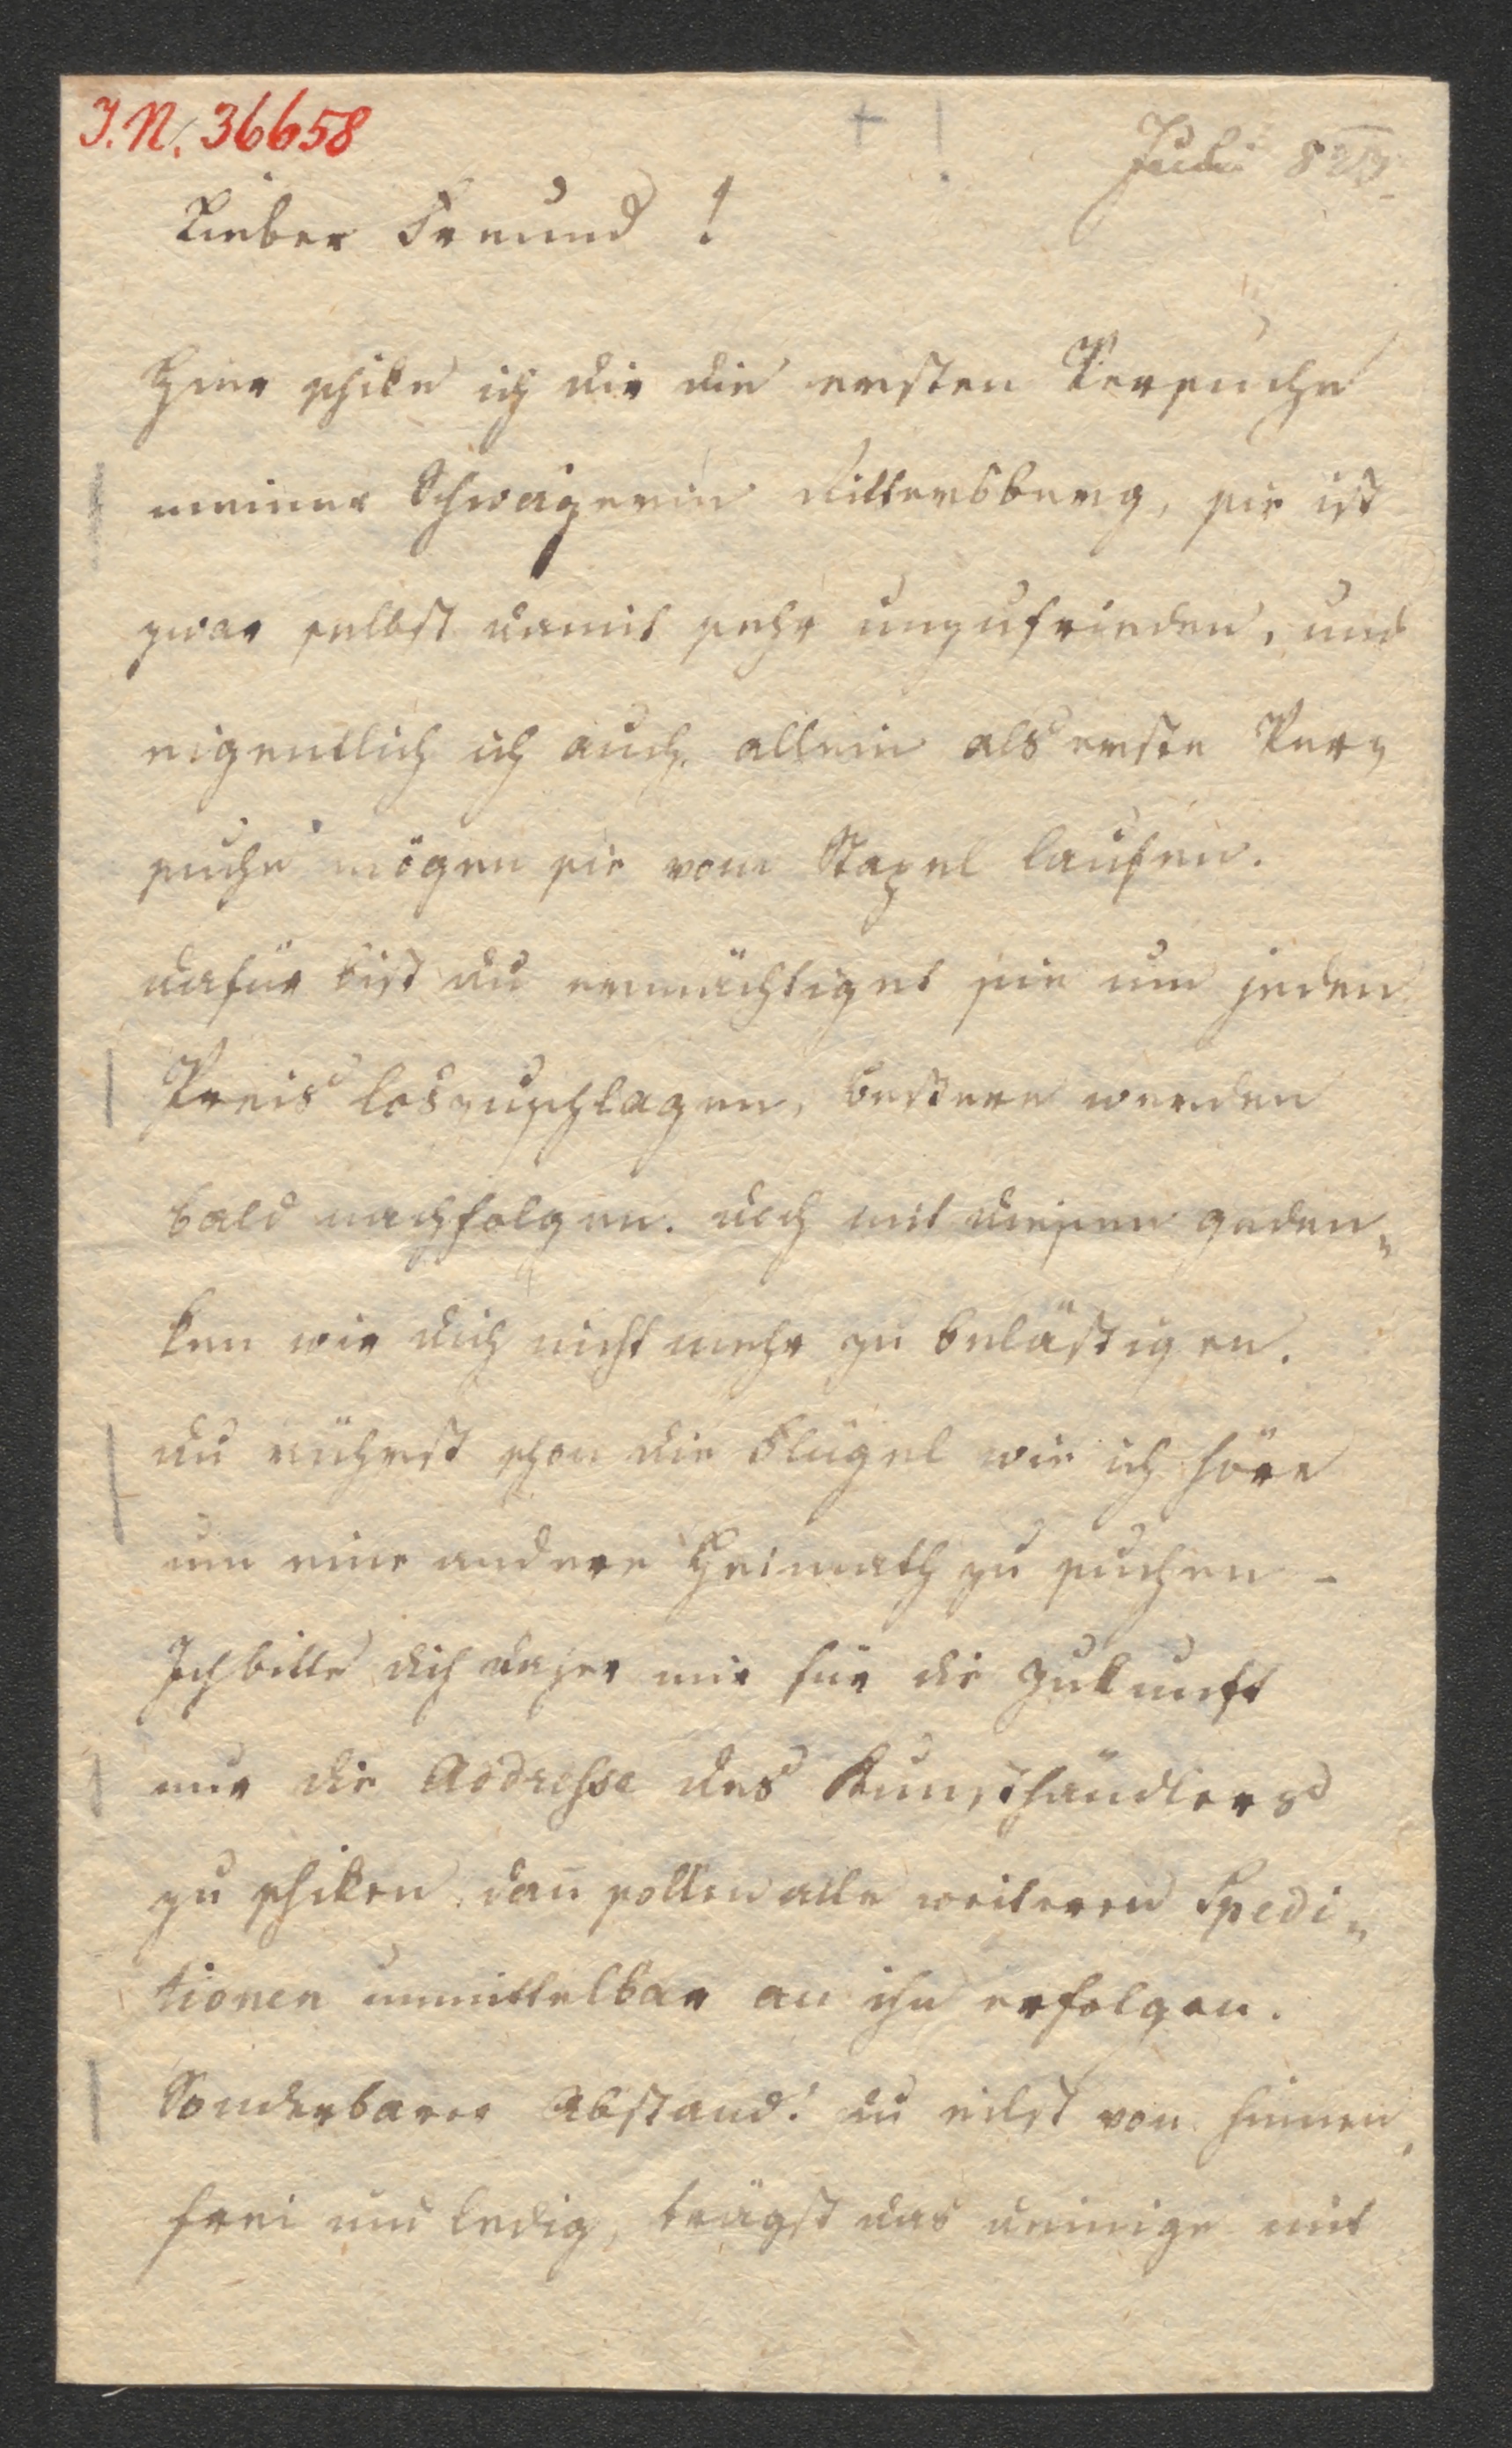 J.N. 36658
Juli
Lieber Freund !
Hier schike ich dir die ersten Versuche
meiner Schwägerin Rittersberg, sie ist
zwar selbst damit sehr unzufrieden, und
eigentlich ich auch, allein als erste Ver„
suche mögen sie vom Stapel laufen.
dafür bist du ermächtiget sie um jeden
Preis loszuschlagen, bessere werden
bald nachfolgen. doch mit diesen geden„
ken wir dich nicht mehr zu belästigen.
du rührst schon die Flügel wie ich höre
um eine andere Heimath zu suchen –
Ich bitte dich daher mir für die Zukunft
nur die Addresse des Kunsthändlers
zu schiken dan̄ sollen alle weiteren Spedi„
tionen unmittelbar an ihn erfolgen.
Sonderbarer Abstand! du eilst von hinnen,
frei und ledig, trägst das deinige mit